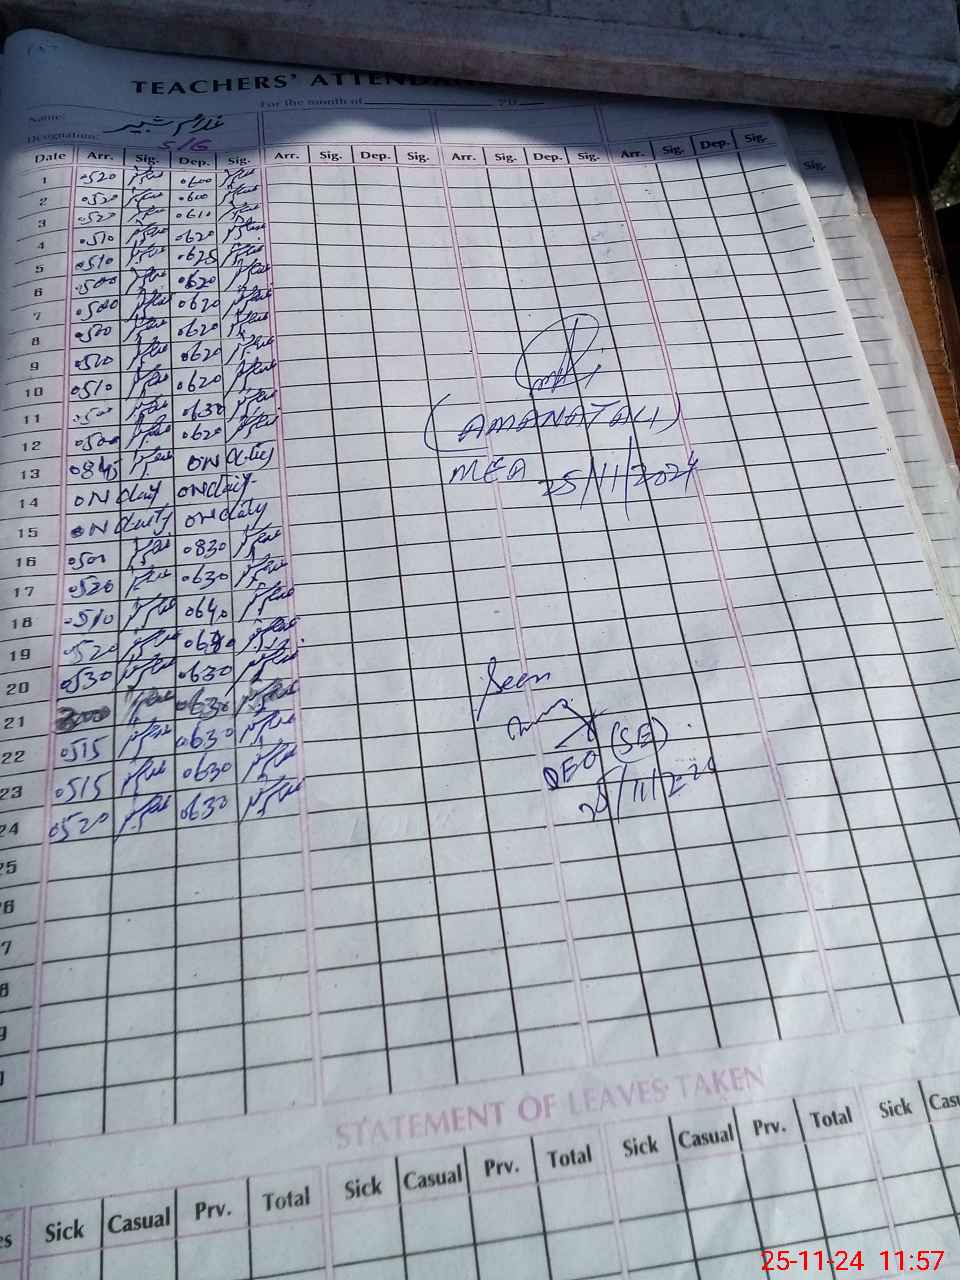 TEACHERS' ATTENDA
For the month of 20
Name: غلام شبیر
Designation: S/G
Date Arr. Sig. Dep. Sig. Arr. Sig. Dep. Sig. Arr. Sig. Dep. Sig. Arr. Sig. Dep. Sig. Sig.
1 0520 0600
2 0520 0600
3 0520 0610
4 0510 0620
5 0510 0625
6 0500 0620
7 0500 0620
8 0520 0620
9 0520 0620
10 0510 0620
11 0500 0630
12 0500 0620
13 0845 ON duty
14 ON duty ON duty
15 ON duty ON duty
16 0500 0830
17 0520 0630
18 0510 0640
19 0520
20 0530 0630
21 0630
22 0515 0630
23 0515 0630
24 0520 0630
25
(AMANAT ALI)
MEA 25/11/2024
Seen
DEO (SE)
25/11/2024
STATEMENT OF LEAVES TAKEN
Sick Casual Prv. Total Sick Casual Prv. Total Sick Casual Prv. Total Sick Casu
25-11-24 11:57